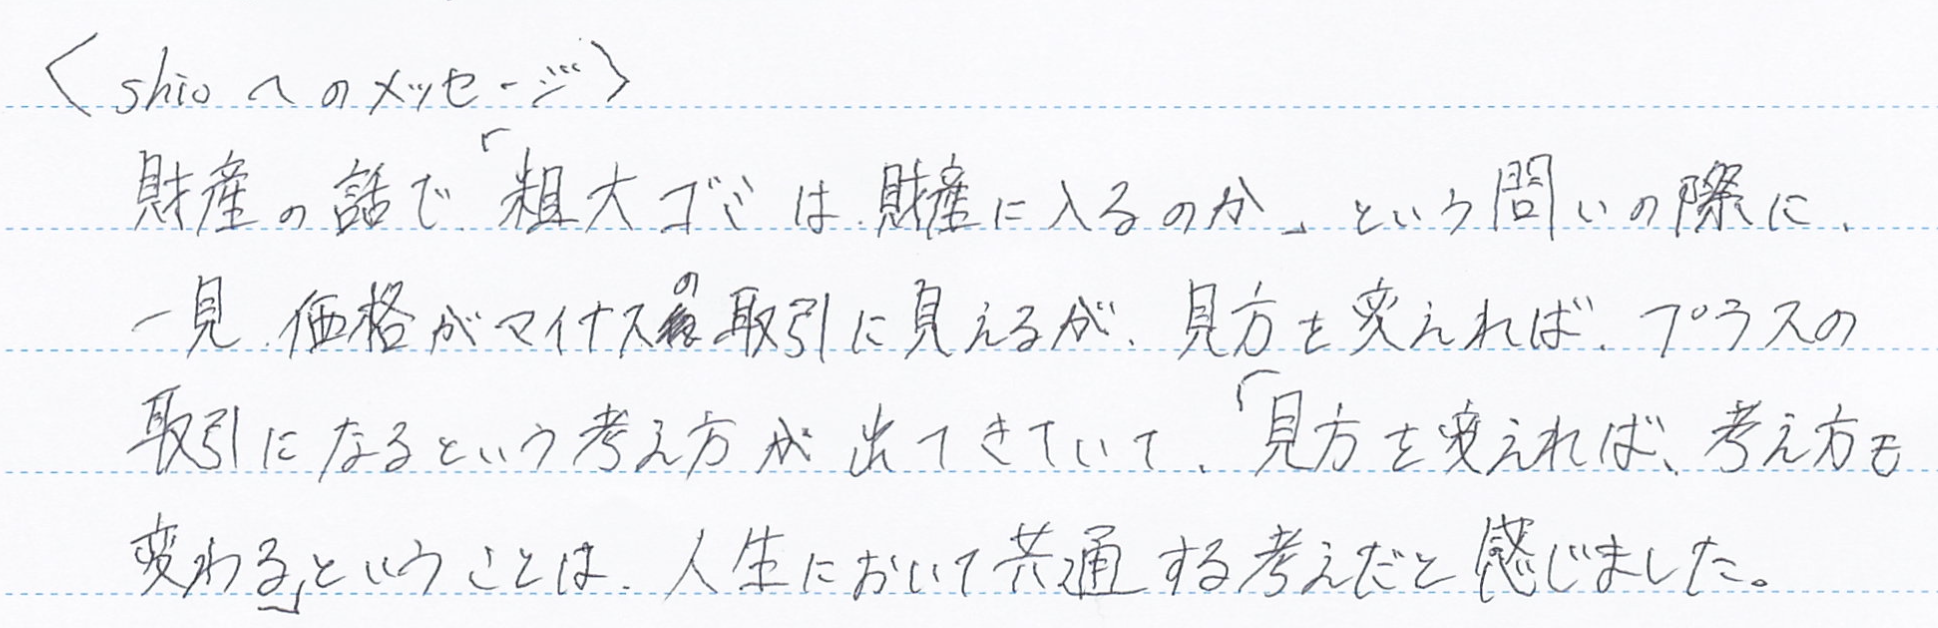 〈shioへのメッセージ〉
財産の話で「粗大ゴミは財産に入るのか」という問いの際に、
一見、価格がマイナスの取引に見えるが、見方を変えれば、プラスの
取引になるという考え方が出てきていて、「見方を変えれば、考え方も
変わる」ということは、人生において共通する考えだと感じました。